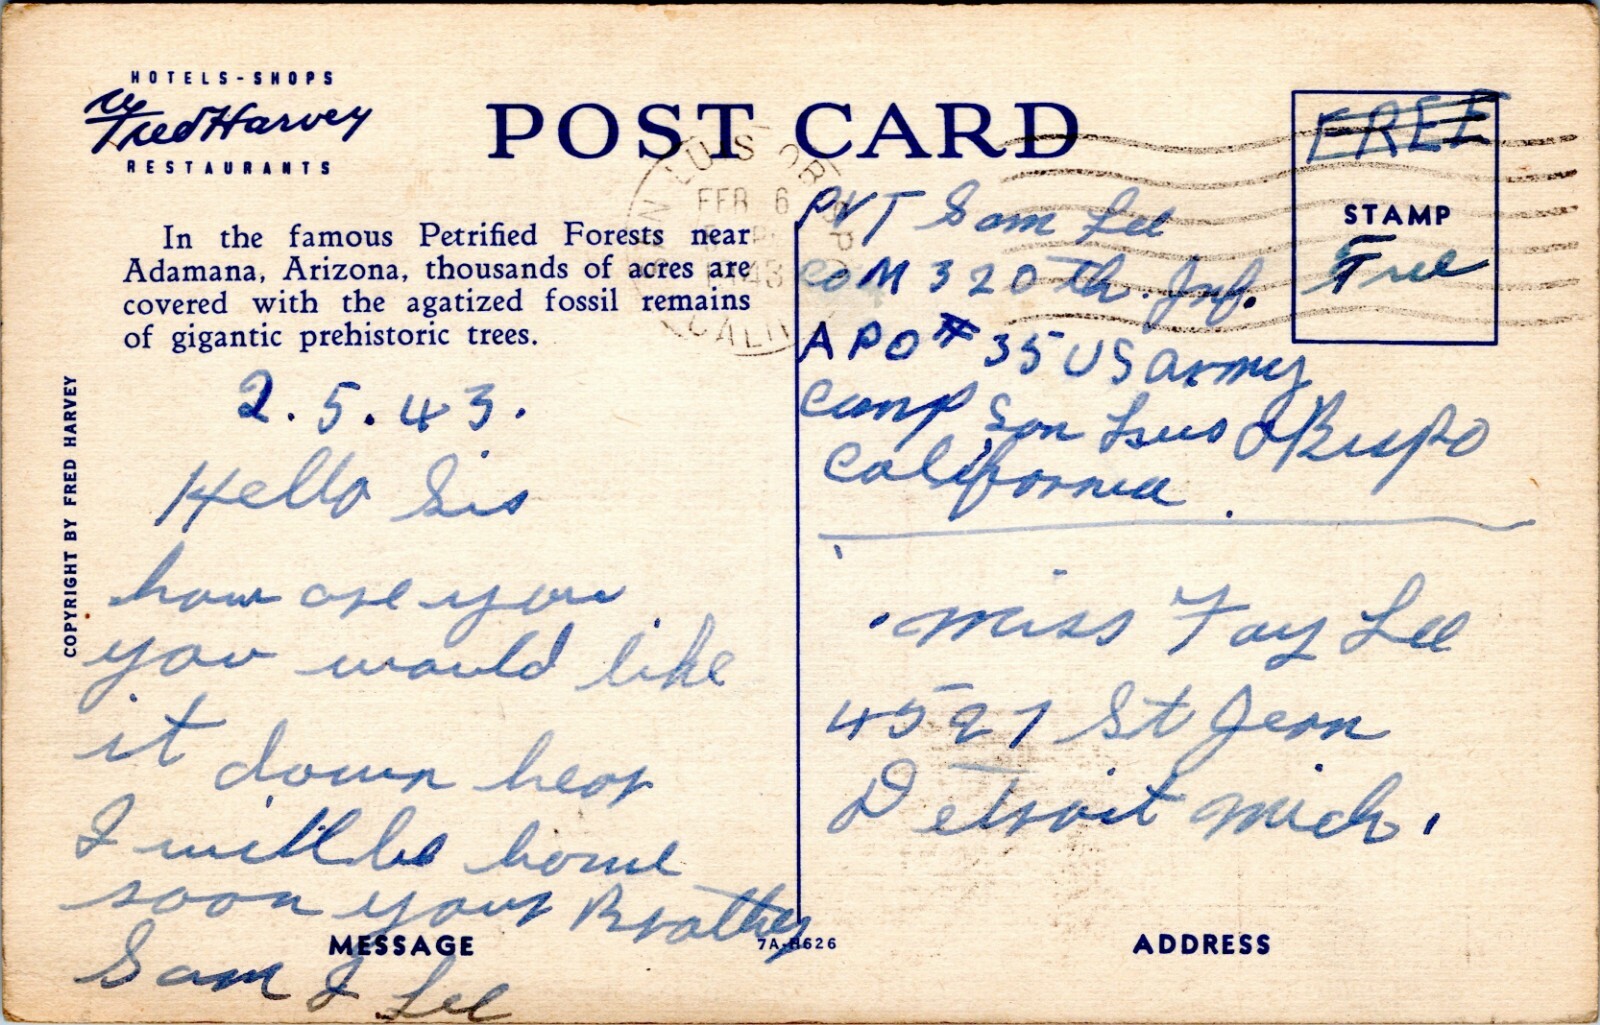 HOTELS-SHOPS
Fred Harvey
RESTAURANTS
POST CARD
In the famous Petrified Forests near
Adamana, Arizona, thousands of acres are
covered with the agatized fossil remains
of gigantic prehistoric trees.
COPYRIGHT BY FRED HARVEY
2.5.43.
Hello Sis
how are you
you would like
it down hear
I will be home
soon your Brother
Sam J Lee
MESSAGE
7A-H626
SAN LUIS OBISPO
FEB 6
1943
CALIF
FREE
STAMP
Free
PVT Sam Lee
Co M 320th. Inf.
APO # 35 US Army
Camp San Luis Obispo
California.
Miss Fay Lee
4527 St Jean
Detroit Mich.
ADDRESS